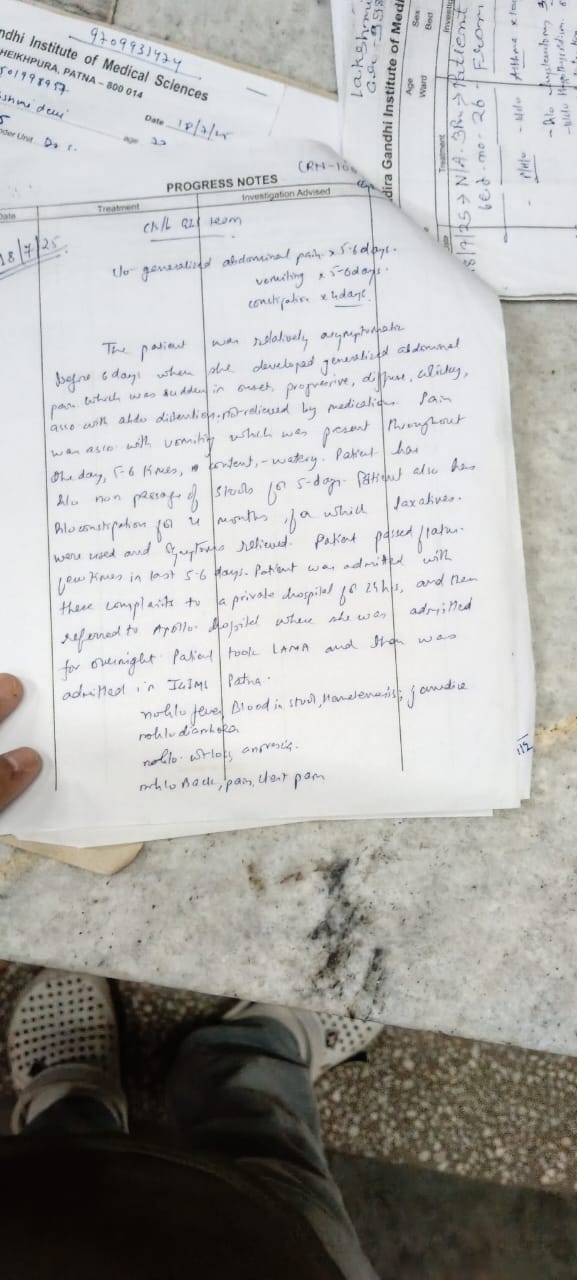 9709931474
ndhi Institute of Medical Sciences
HEIKHPURA, PATNA – 800 014
Date 18/7/25
age
PROGRESS NOTES
Date
Treatment
Investigation Advised
18/7/25
team
c/o generalised abdominal pain x 5-6 days.
vomiting x 5-6 days.
constipation x 4 days.
The patient was relatively asymptomatic
before 6 days when she developed generalised abdominal
pain which was sudden in onset, progressive, diffuse, colicky,
asso with abdo distention, not relieved by medication. Pain
was asso with vomiting which was present throughout
the day, 5-6 times, content, - watery. Patient has
h/o non passage of stools for 5-days. Patient also has
h/o constipation for 4 months, for which laxatives
were used and symptoms relieved. Patient passed flatus
few times in last 5-6 days. Patient was admitted with
these complaints to a private hospital for 24 hrs, and then
referred to Apollo hospital where she was admitted
for overnight. Patient took LAMA and then was
admitted in IGIMS Patna.
no h/o fever, Blood in stool, jaundice
no h/o diarrhoea
no h/o wt loss, anorexia.
no h/o Back pain, chest pain
dira Gandhi Institute of Medi
Age
Sex
Ward
Bed
Treatment
Investig
18/7/25 → N/A
bed - no - 26 - From
Asthma